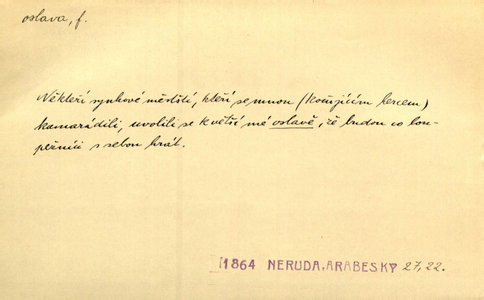 oslava, f.
Někteří synkové městští, kteří se mnou (kočujícím hercem)
kamarádili, uvolili se k větší mé oslavě, že budou co lou-
pežníci s sebou hrát.
1864 NERUDA, ARABESKY 27, 22.